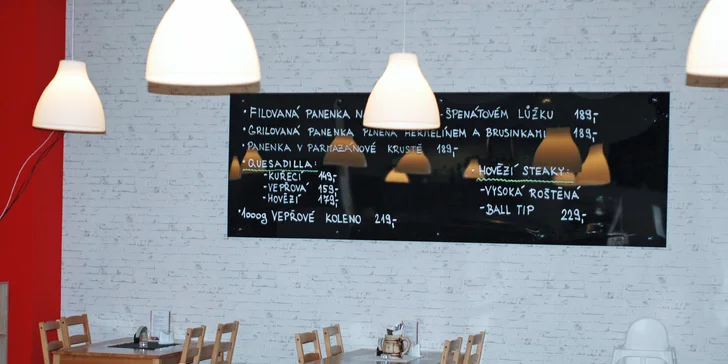 • FILOVANÁ PANENKA N ŠPENÁTOVÉM LŮŽKU 189,-
• GRILOVANÁ PANENKA PLNĚNÁ HERMELÍNEM A BRUSINKAMI 189,-
• PANENKA V PARMAZÁNOVÉ KRUSTĚ 189,-
• QUESADILLA:
- KUŘECÍ 149,-
- VEPŘOVÁ 159,-
- HOVĚZÍ 179,-
• 1000g VEPŘOVÉ KOLENO 219,-
• HOVĚZÍ STEAKY:
- VYSOKÁ ROŠTĚNÁ
- BALL TIP 229,-